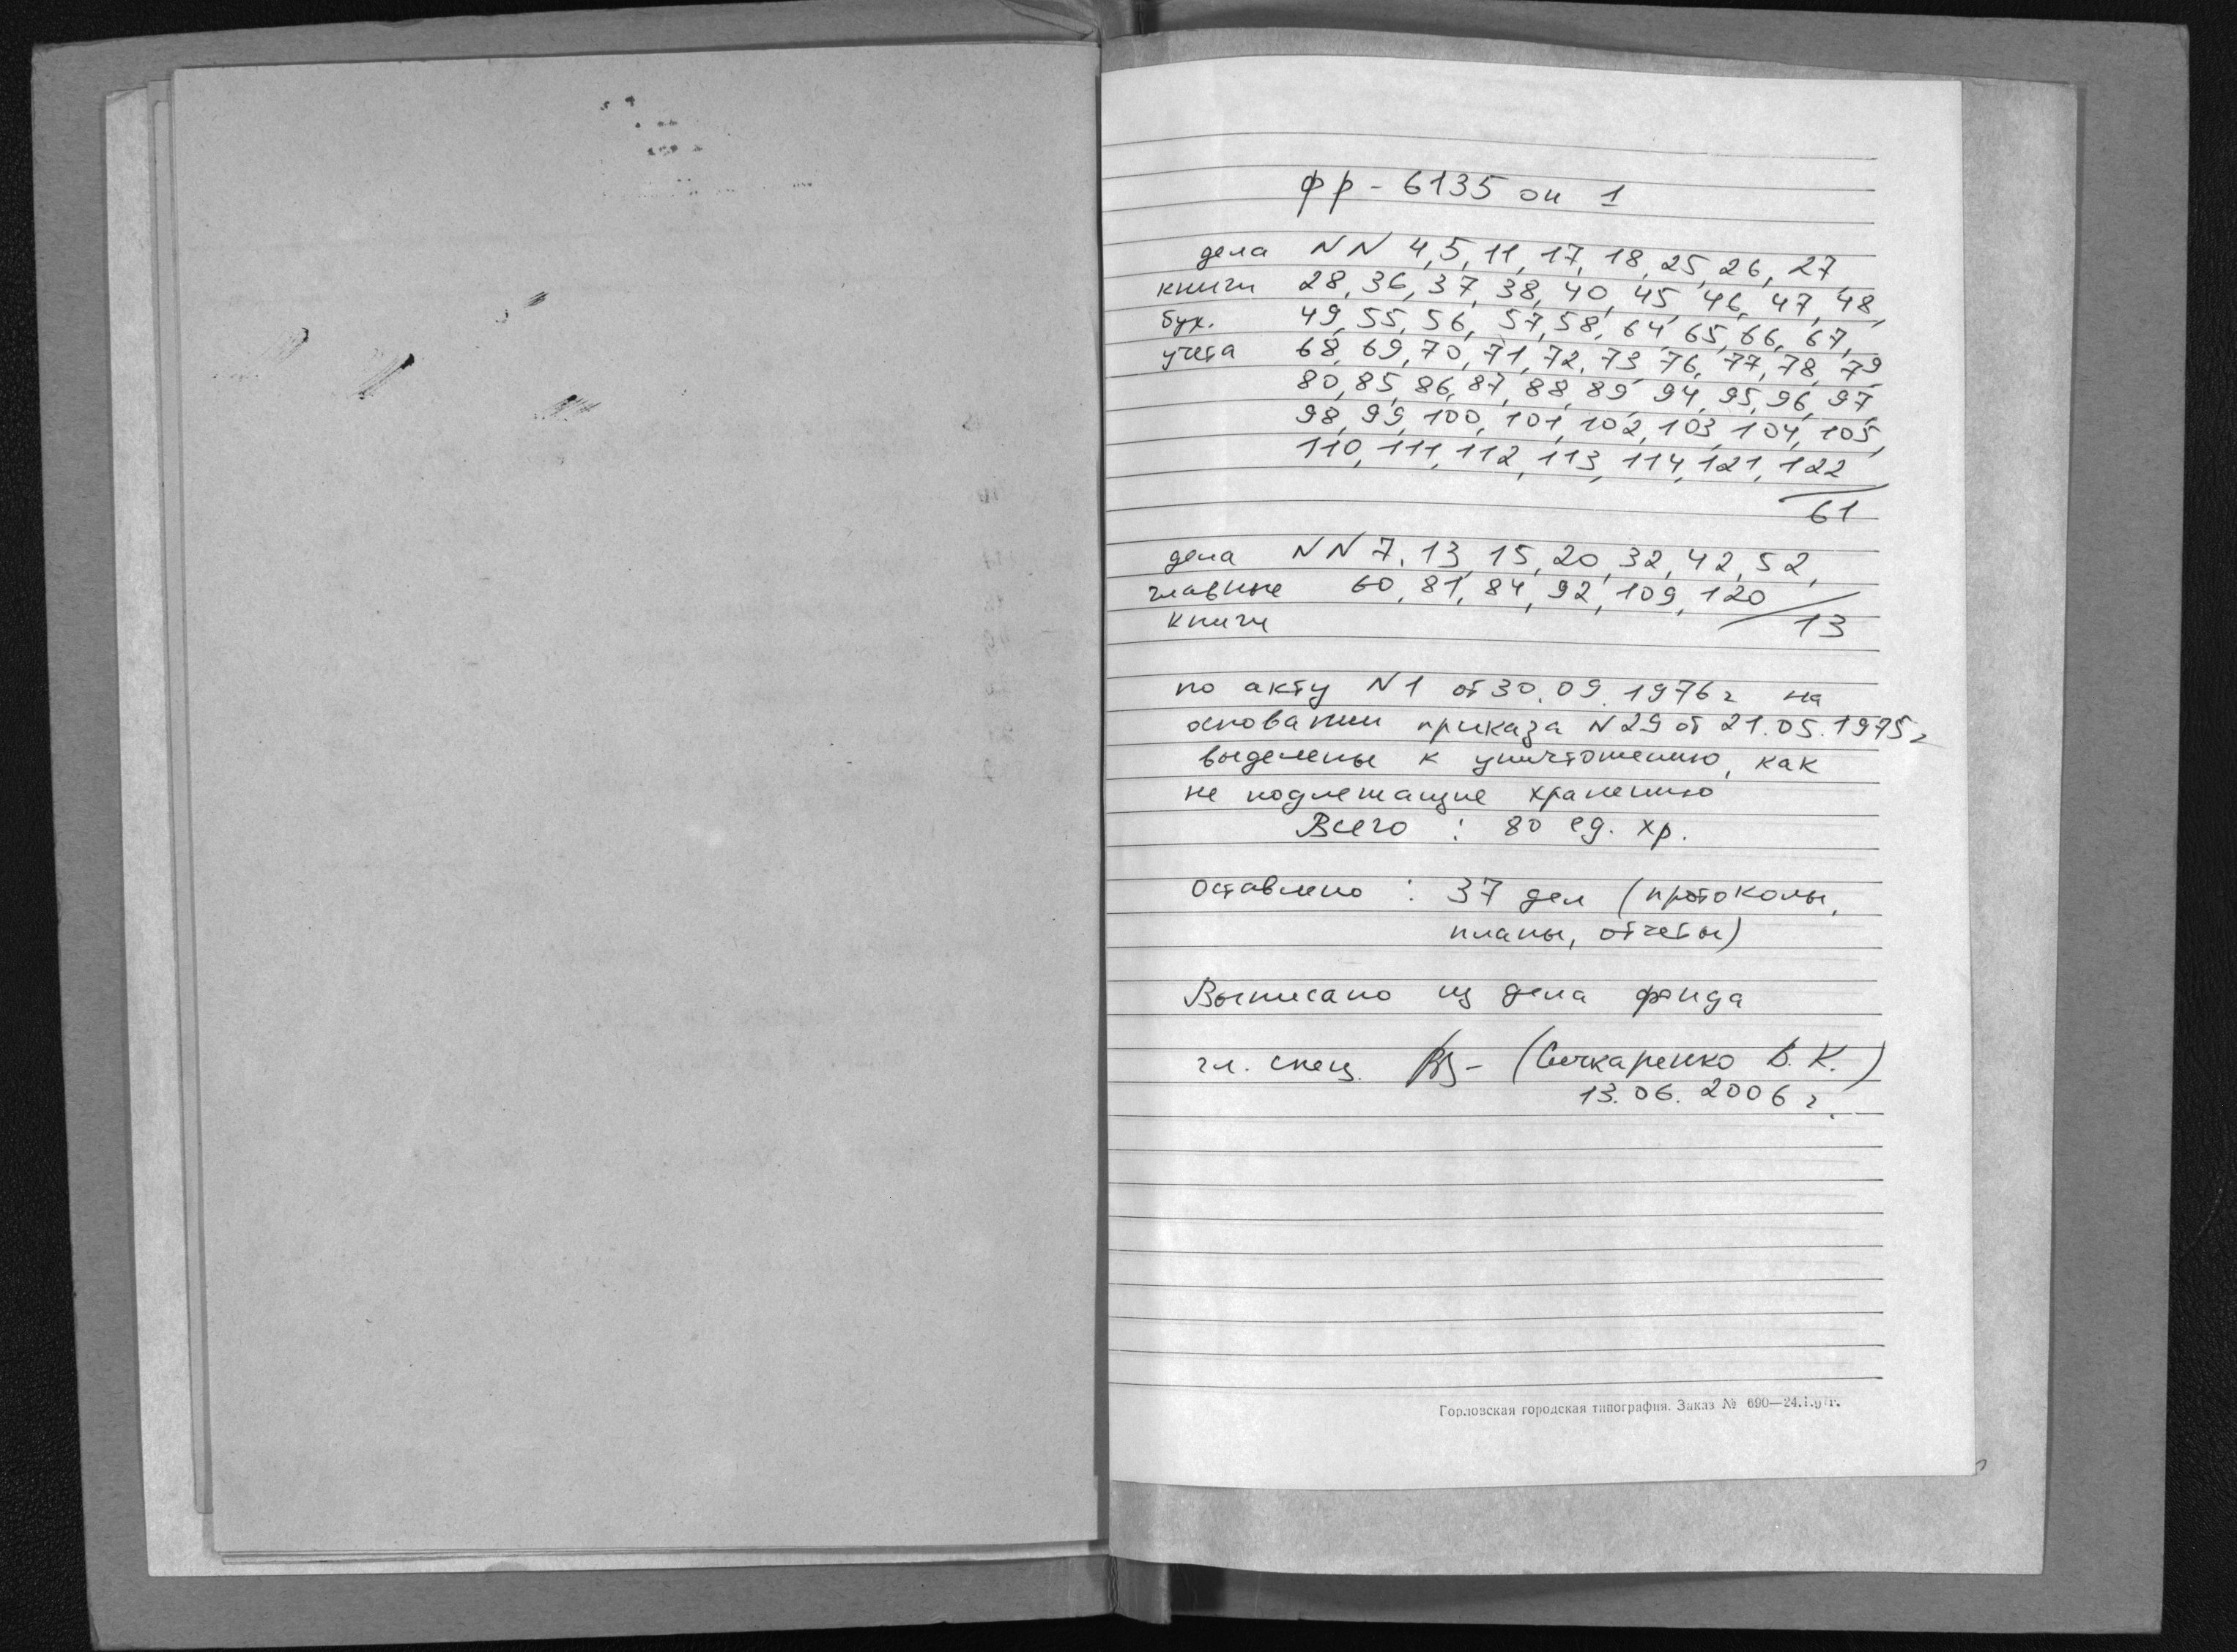 фр - 6135 оп 1
дела NN 4, 5, 11, 17, 18, 25, 26, 27,
книги 28, 36, 37, 38, 40, 45, 46, 47, 48,
бух. 49, 55, 56, 57, 58, 64, 65, 66, 67,
учета 68, 69, 70, 71, 72, 73, 76, 77, 78, 79
80, 85, 86, 87, 88, 89, 94, 95, 96, 97,
98, 99, 100, 101, 102, 103, 104, 105,
110, 111, 112, 113, 114, 121, 122
61
дела NN 7, 13, 15, 20, 32, 42, 52,
главные 60, 81, 84, 92, 109, 120
книги 13
по акту N1 от 30.09.1976 г на
основании приказа N29 от 21.05.1975 г
выделены к уничтожению, как
не подлежащие хранению
Всего : 80 ед. хр.
Оставлено : 37 дел (протоколы,
планы, отчеты)
Выписано из дела фонда
гл. спец. (Сечкаренко В. К.)
13.06.2006 г.
Горловская городская типография. Заказ № 690—24.